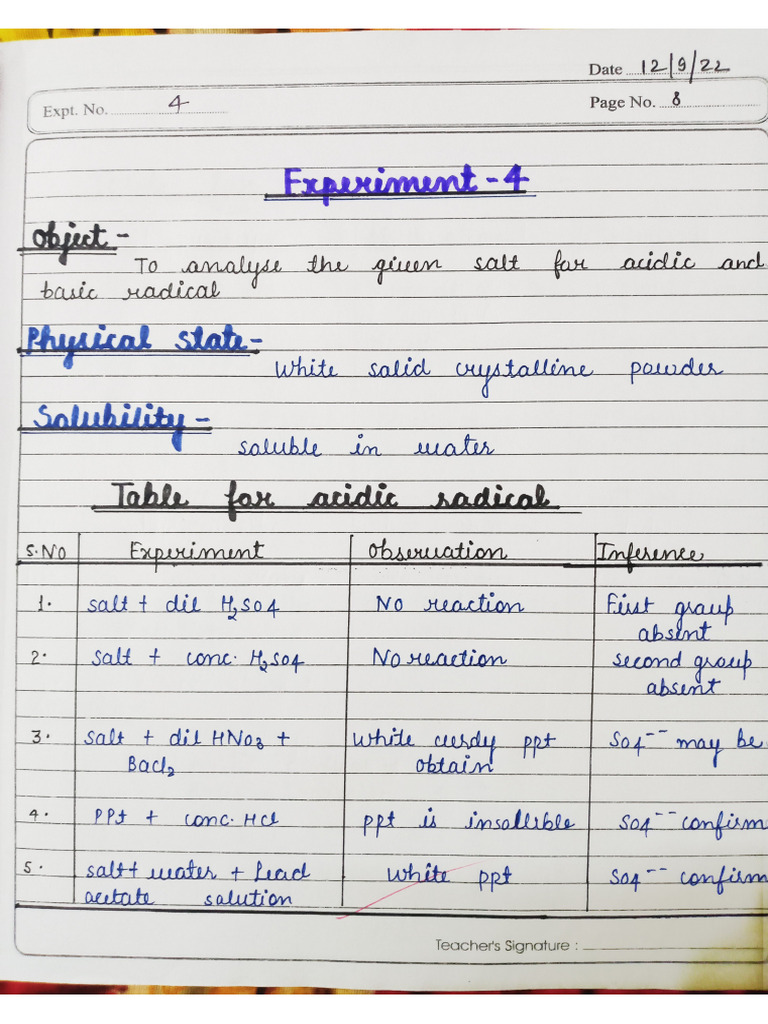 Date 12/9/22
Expt. No. 4 Page No. 8
Experiment-4
Object-
To analyse the given salt for acidic and
basic radical
Physical state-
White solid crystalline powder
Solubility-
soluble in water
Table for acidic radical
S.NO Experiment Observation Inference
1. salt + dil H2SO4 NO reaction First group
absent
2. salt + conc. H2SO4 No reaction second group
absent
3. salt + dil HNO3 + White curdy ppt SO4-- may be
BaCl2 obtain
4. PPt + conc. HCl ppt is insollible SO4-- confirm
5. salt+ water + Lead White ppt SO4-- confirm
acetate solution
Teacher's Signature :